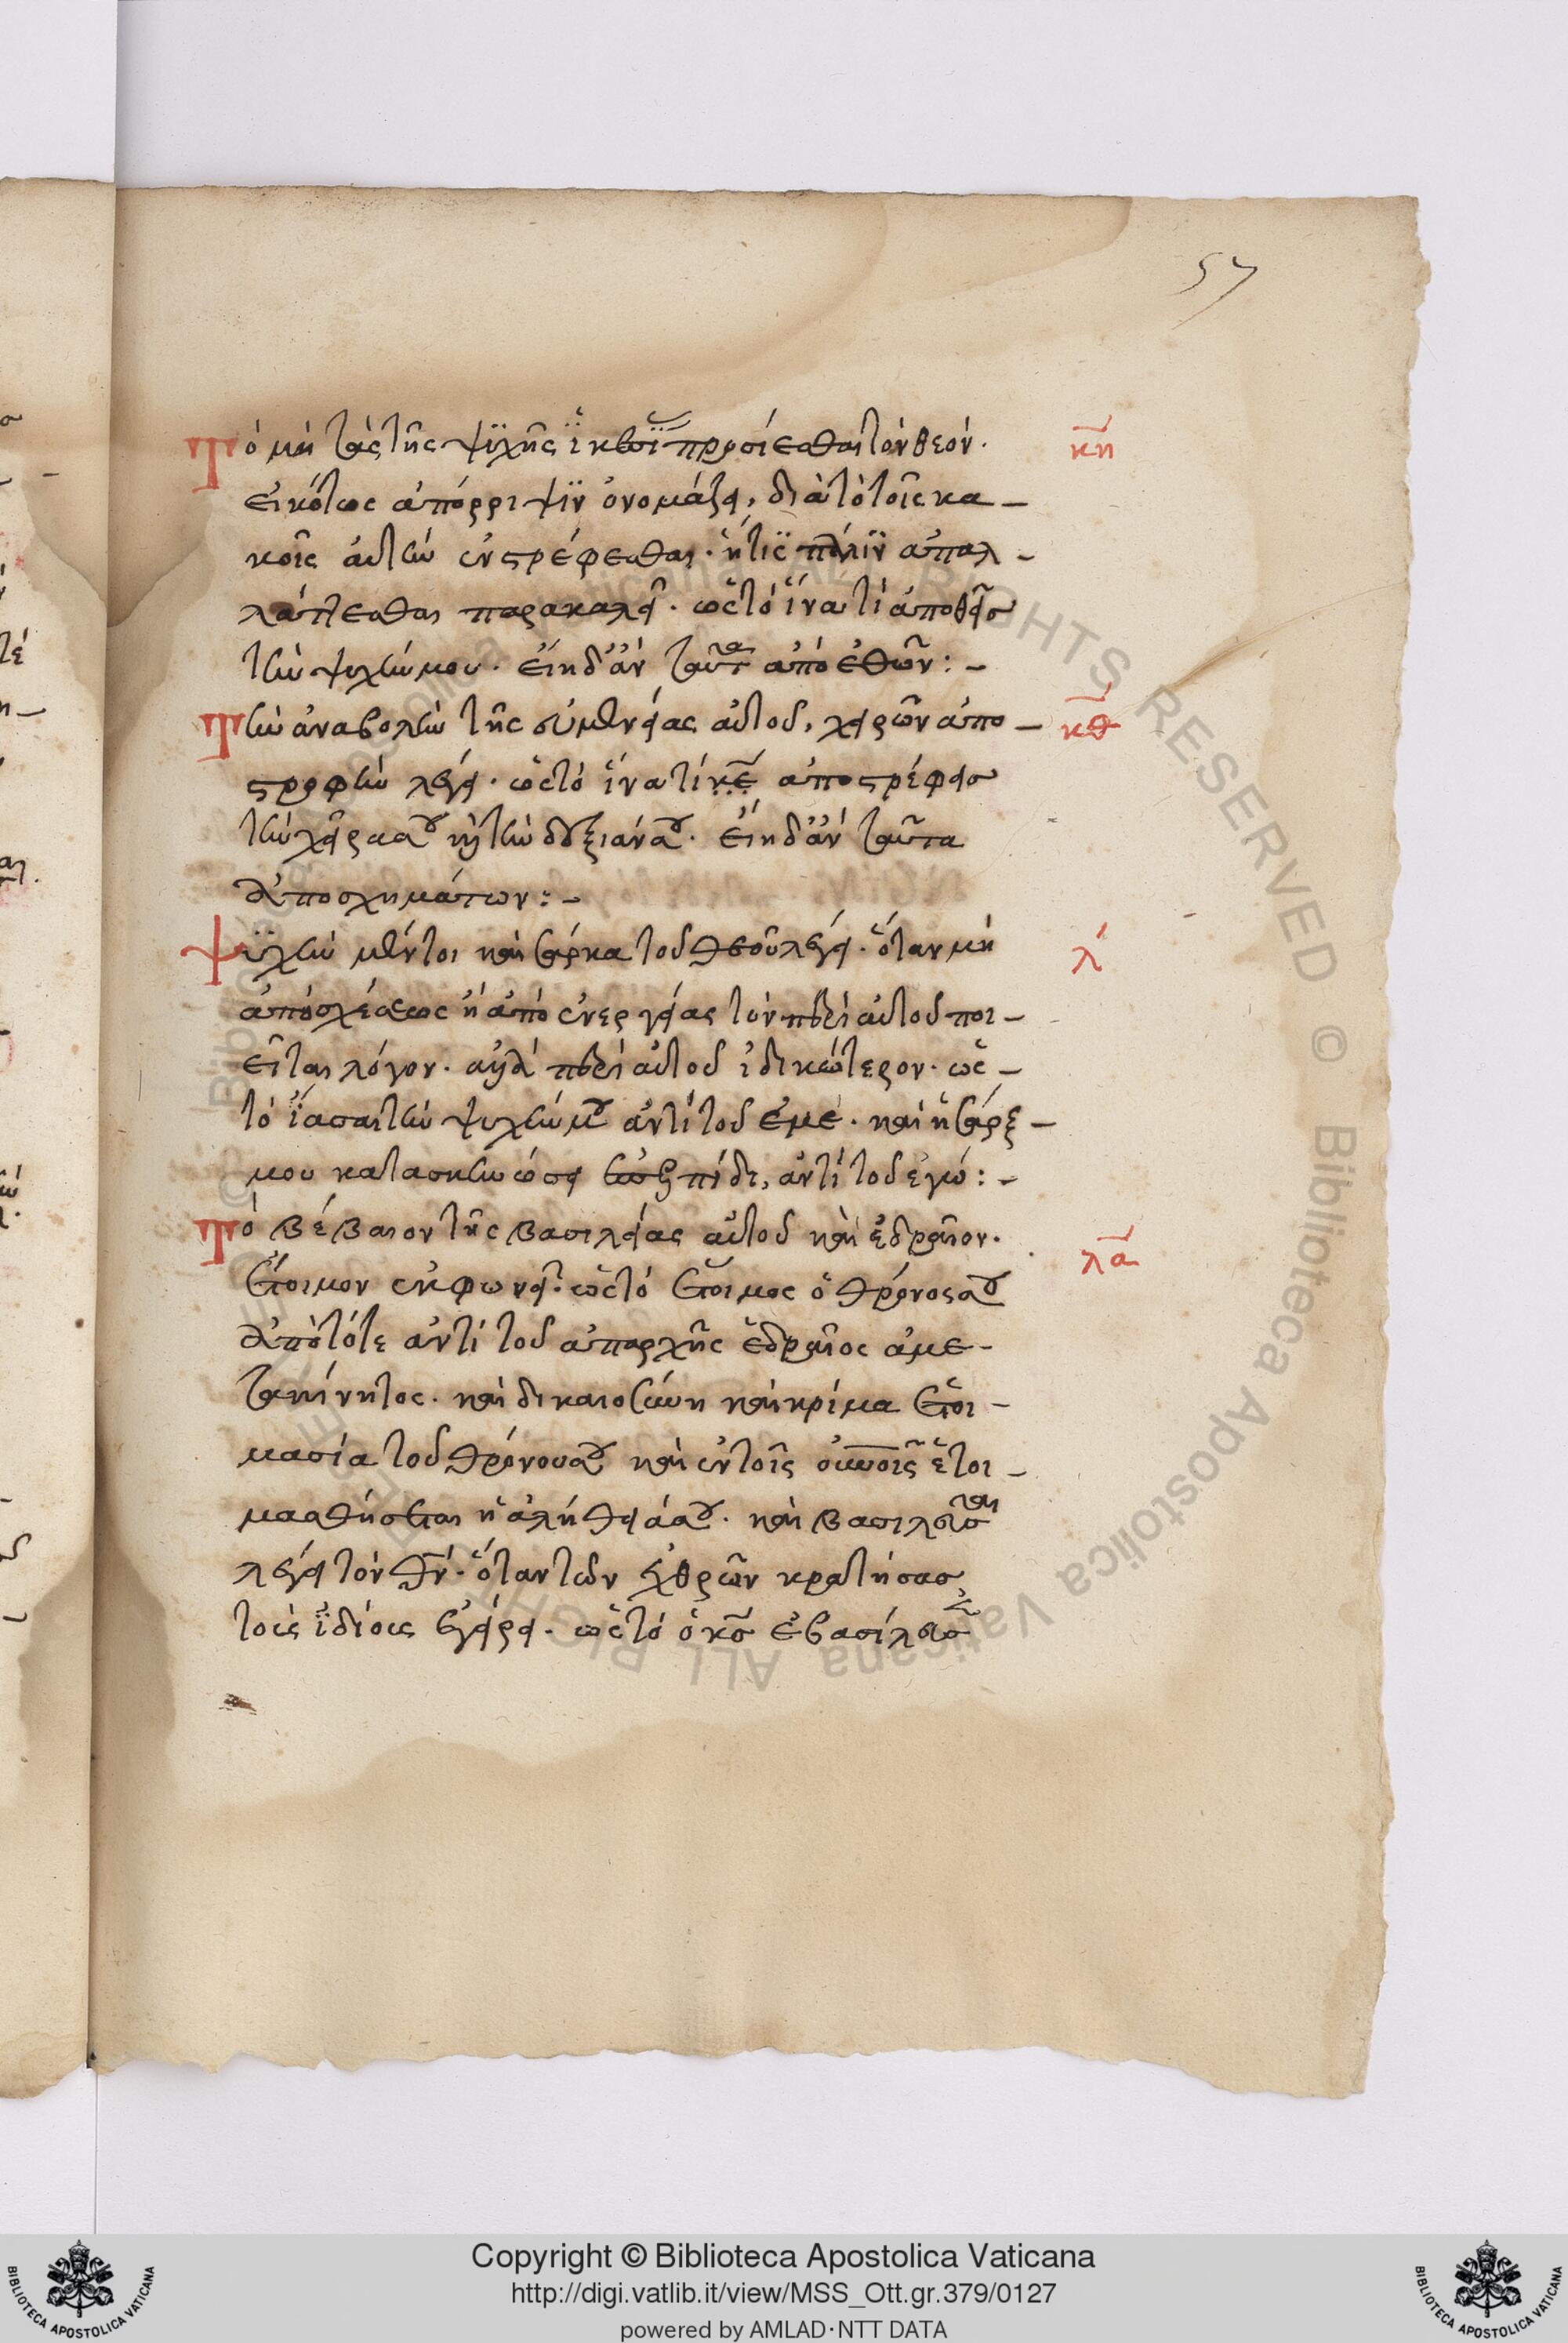 57
Τὸ μὴ τὰς τῆς ψϋχῆς ἱκεσί προσίεσθαι τὸν θεόν· κη
εἰκότως ἀπόρριψϊν ὀνομάζει, διὰ τὸ τοῖς κα-
κοῖς αὐτὴν ἐνστρέφεσθαι· ἥτις πάλϊν ἀπαλ-
λάττεσθαι παρακαλεῖ· ὡς τὸ ἵνα τί ἀπωθεῖς
τὴν ψυχήν μου· εἴη δ' ἂν ταῦτα ἀπὸ ἐθῶν:-
Τὴν ἀναβολὴν τῆς συμπνείας αὐτοῦ, χειρῶν ἀπο- κθ
στροφὴν λέγει· ὡς τὸ ἵνα τί κε ἀποστρέφεις
τὴν χεῖρα σου καὶ τὴν δεξιάν σου· εἴη δ' ἂν ταῦτα
ἀπὸ σχημάτων:-
Ψϋχὴν μέντοι καὶ σάρκα τοῦ θεοῦ λέγει· ὅταν μὴ λ
ἀπὸ σχέσεως ἢ ἀπὸ ἐνεργείας τὸν περὶ αὐτοῦ ποι-
εῖται λόγον· ἀλλὰ περὶ αὐτοῦ ἰδικώτερον· ὡς
τὸ ἴασαι τὴν ψυχήν μου ἀντὶ τοῦ ἐμέ· καὶ ἡ σάρξ
μου κατασκηνώσει ἐπ' ἐλπίδι, ἀντὶ τοῦ ἐγώ:-
Τὸ βέβαιον τῆς βασιλείας αὐτοῦ καὶ ἑδραῖον· λα
ἕτοιμον ἐκφωνεῖ· ὡς τὸ ἕτοιμος ὁ θρόνος σου
ἀπὸ τότε ἀντὶ τοῦ ἀπαρχῆς ἑδραῖος ἀμε-
τακίνητος· καὶ δικαιοσύνη καὶ κρίμα ἑτοι-
μασία τοῦ θρόνου σου καὶ ἐν τοῖς οὐνοῖς ἑτοι-
μασθήσεται ἡ ἀλήθειά σου· καὶ βασιλεῦσαι
λέγει τὸν θν· ὅταν τῶν ἐχθρῶν κρατήσας
τοὺς ἰδίους ἐγείρει· ὡς τὸ ὁ κς ἐβασίλευσε
Copyright © Biblioteca Apostolica Vaticana
http://digi.vatlib.it/view/MSS_Ott.gr.379/0127
powered by AMLAD·NTT DATA